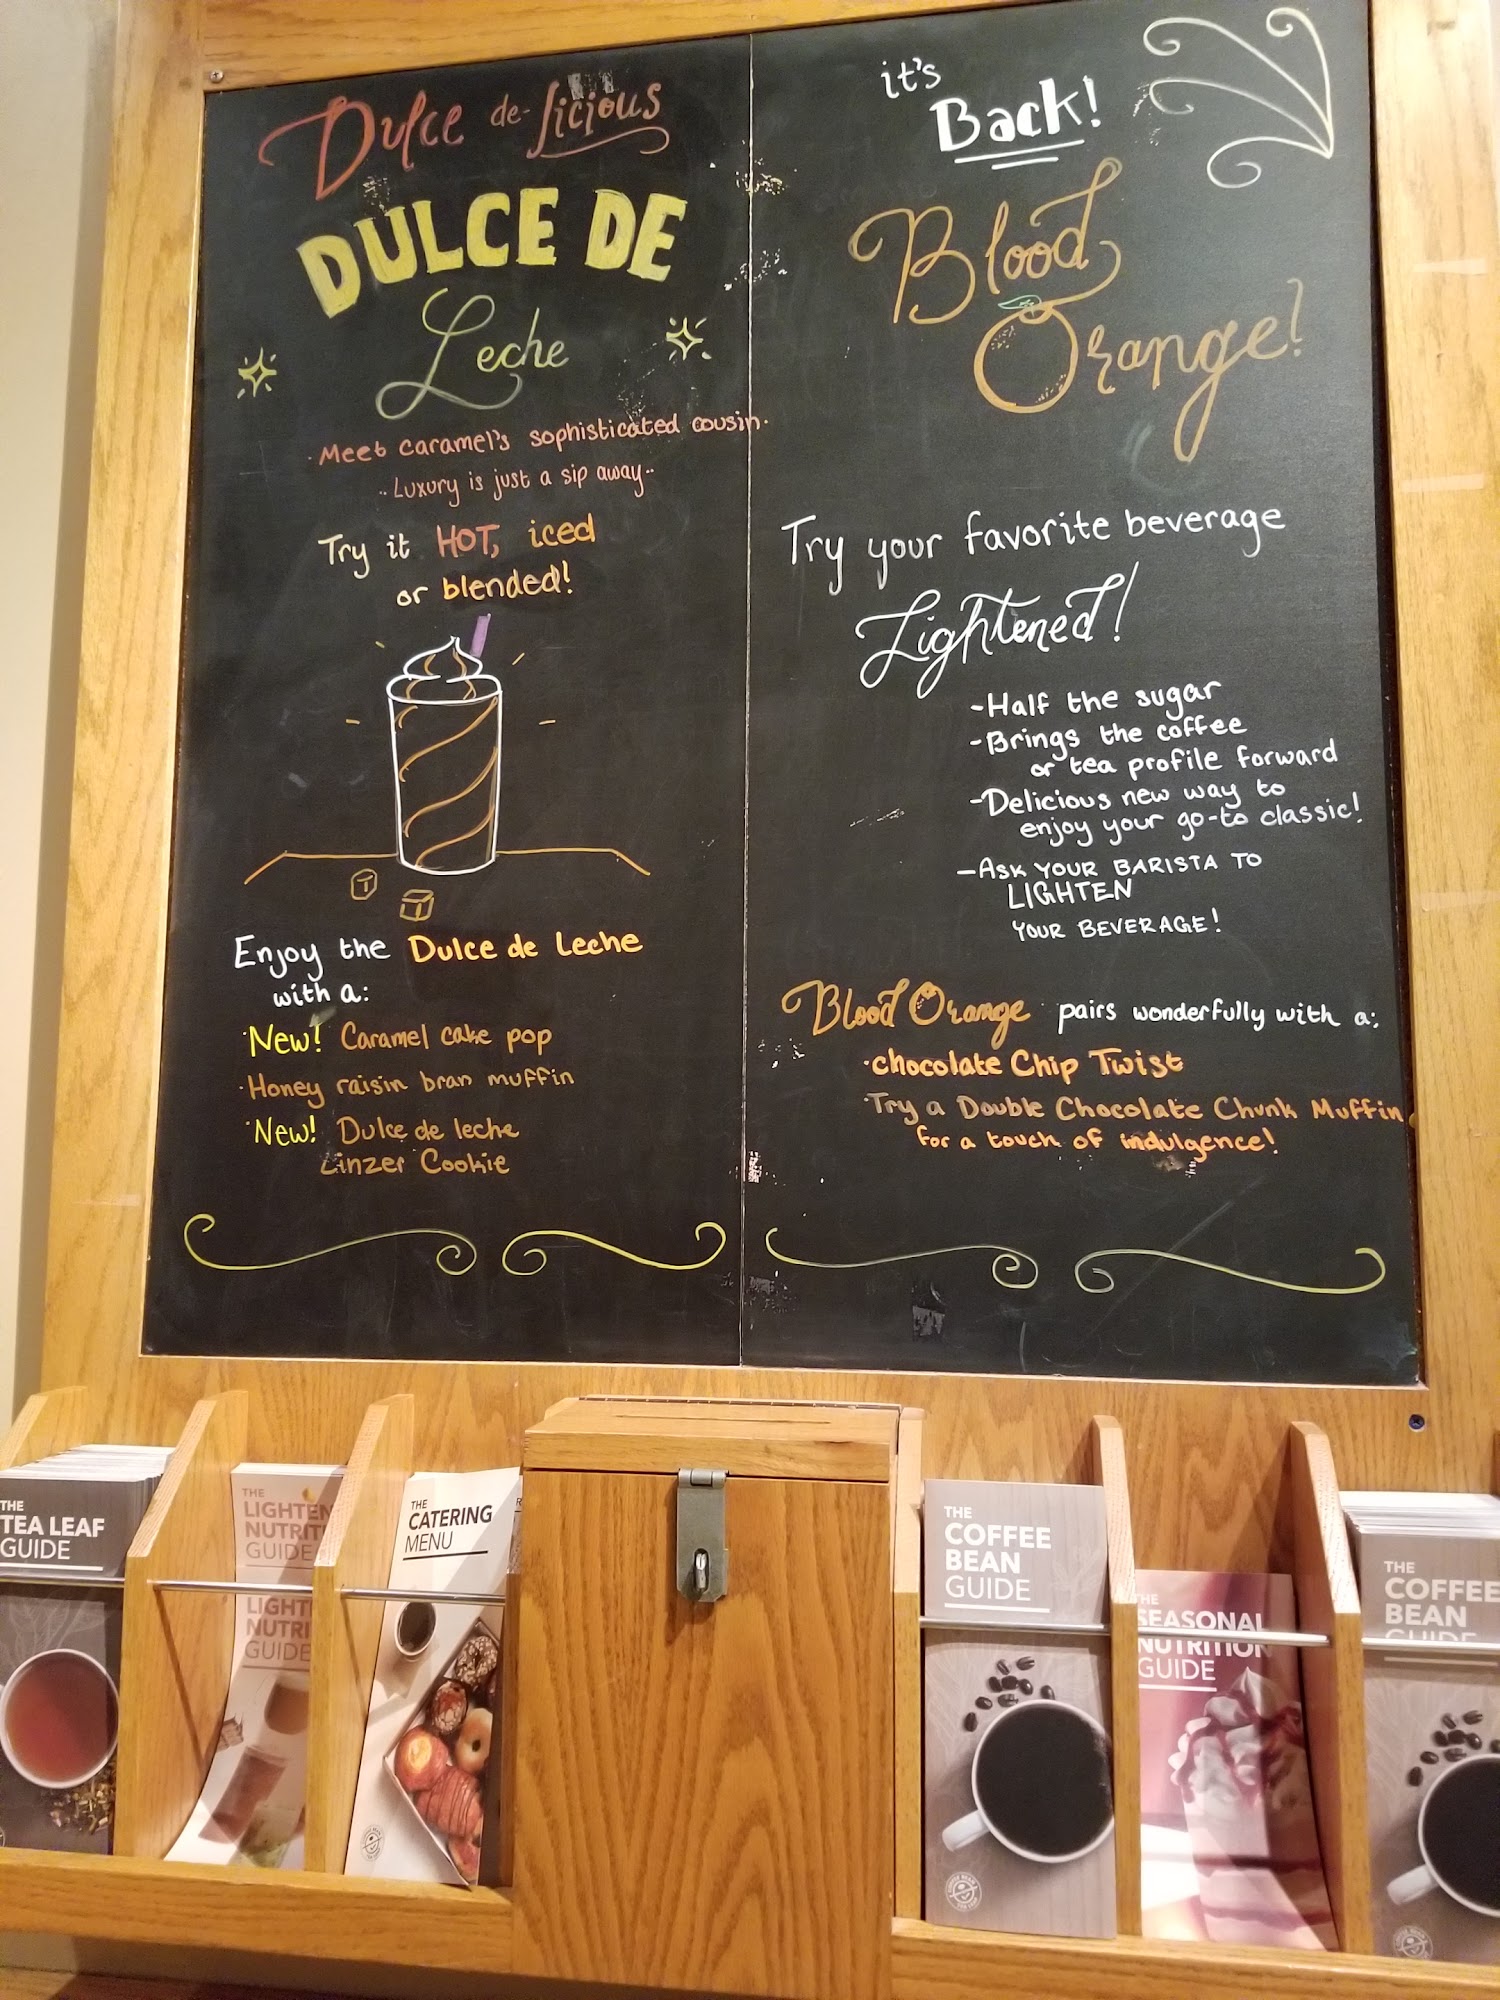 Dulce de-licious
DULCE DE
Leche
· Meet caramel's sophisticated cousin.
.. Luxury is just a sip away..
Try it HOT, iced
or blended!
Enjoy the Dulce de Leche
with a:
·New! Caramel cake pop
·Honey raisin bran muffin
·New! Dulce de leche
Linzer Cookie
it's
Back!
Blood
Orange!
Try your favorite beverage
Lightened!
-Half the sugar
-Brings the coffee
or tea profile forward
-Delicious new way to
enjoy your go-to classic!
-ASK YOUR BARISTA TO
LIGHTEN
YOUR BEVERAGE!
Blood Orange pairs wonderfully with a:
·chocolate Chip Twist
·Try a Double Chocolate Chunk Muffin
for a touch of indulgence!
THE
TEA LEAF
GUIDE
THE
LIGHTEN
NUTRITI
GUIDE
LIGHT
NUTRI
GUIDE
THE
CATERING
MENU
THE
COFFEE
BEAN
GUIDE
THE
SEASONAL
NUTRITION
GUIDE
THE
COFFEE
BEAN
GUIDE